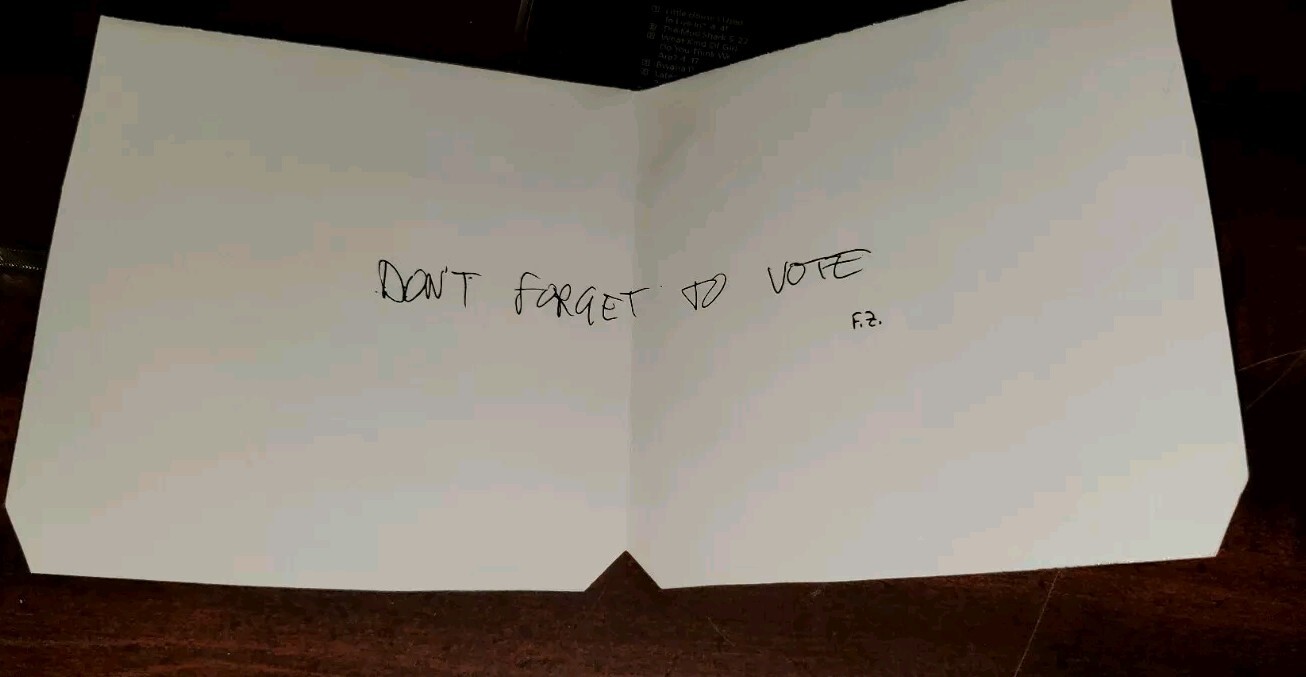 DON'T FORGET TO VOTE
F.Z.